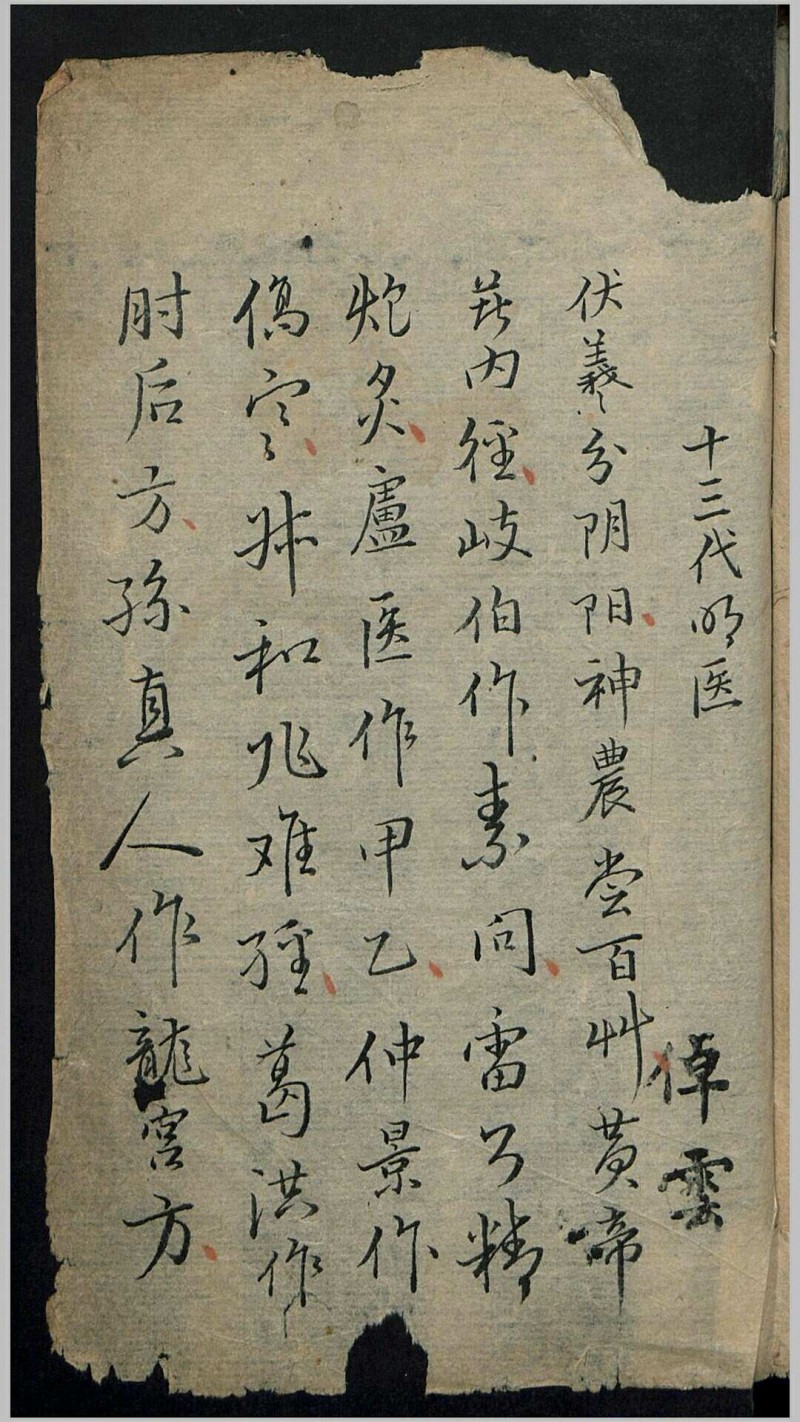 十三代明医
倬雲
伏羲分阴阳神農尝百艸黄啼
甚内徑岐伯作素问雷公精
炮炙盧医作甲乙仲景作
傷寒叔和兆难經葛洪作
肘后方孫真人作龍宮方